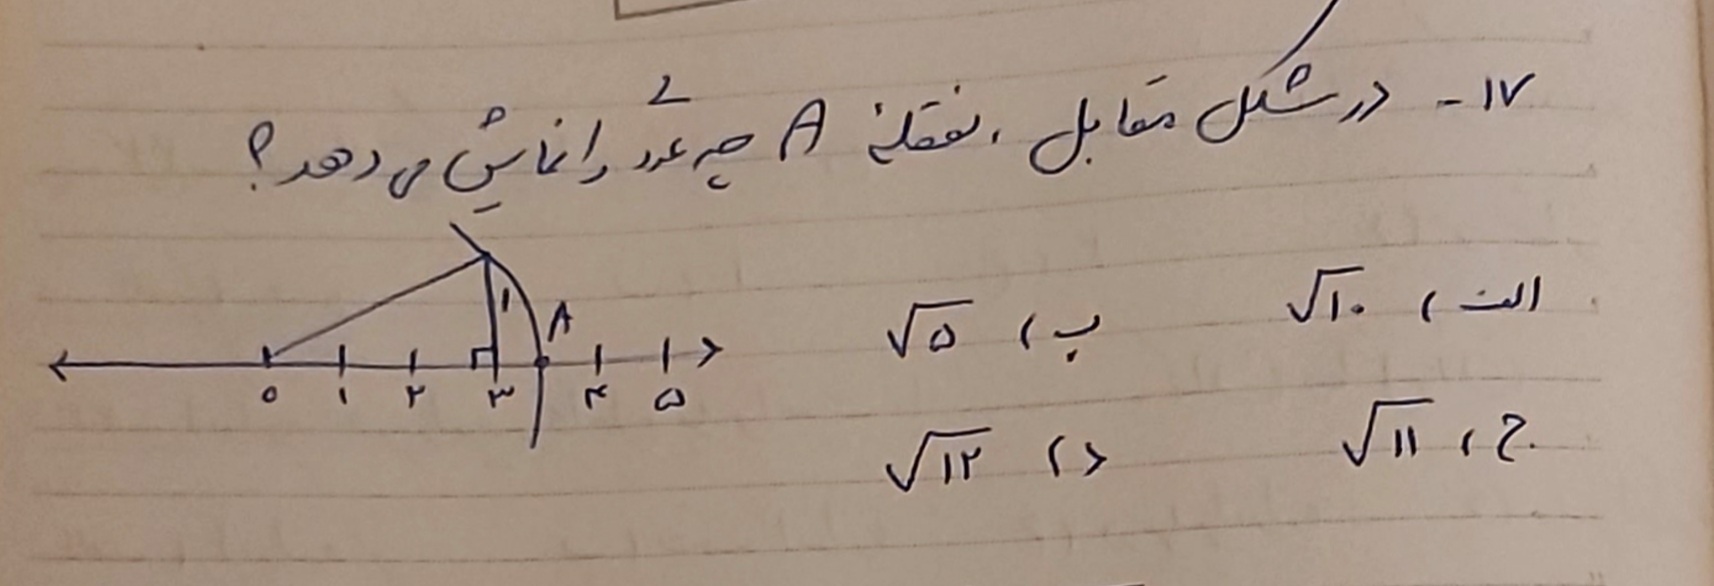 ۱۷- در شکل مقابل، نقطهٔ A چه عددی را نمایش می دهد؟
الف) √۱۰ ب) √۵
ج) √۱۱ د) √۱۲
۱ A
۰ ۱ ۲ ۳ ۴ ۵